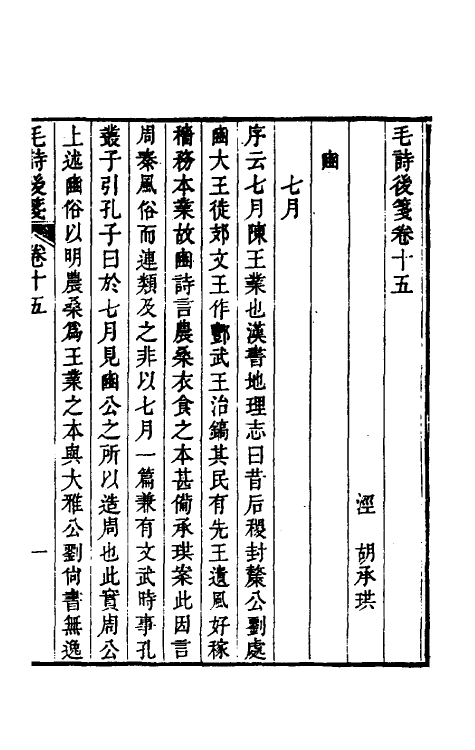 毛詩後箋卷十五
涇　胡承珙
豳
七月
序云七月陳王業也漢書地理志曰昔后稷封斄公劉處
豳大王徙郊文王作酆武王治鎬其民有先王遺風好稼
穡務本業故豳詩言農桑衣食之本甚備承珙案此因言
周秦風俗而連類及之非以七月一篇兼有文武時事孔
叢子引孔子曰於七月見豳公之所以造周也此實周公
上述豳俗以明農桑爲王業之本與大雅公劉尙書無逸
毛詩後箋　卷十五　一